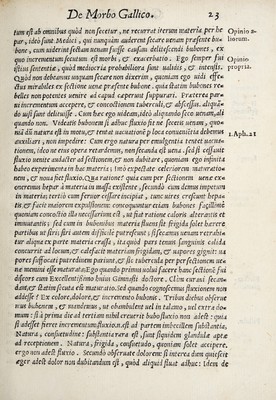 De Morbo Gallico. 23
tum est ab omnibus quod non secetur, ne recurrat iterum materia per he
par, ideò sunt Medici, qui nunquam audent secare uenam præsente bu
bone, cum uiderint sectam uenam fuisse causam delitescendi bubones, ex
quo incrementum secutum est morbi, & exacerbatio. Ego semper fui
istius sententiæ, quòd mediocria probabiliora sunt ualidis, & intensis.
Quod non debeamus unquam secare non dixerim, quoniam ego uidi effe-
ctus mirabiles ex sectione uenæ præsente bubone. quia statim bubones re-
belles non potentes uenire ad caput caperunt suppurari. Præterea pa-
rui incrementum accepere, & concoctionem tuberculi, & abscessus. aliquã-
do uisi sunt delituisse. Cum hæc ego uideam, ideò aliquando seco uenam, ali
quando non. Videatis bubonem si adhuc fluxio fit ne secetis uenam, quo-
niã dũ natura est in motu, & tentat uacuationẽ p loca conuenientia debemus
auxiliare, non impedire: Cum ergo natura per emulgentia tentet uacua-
tionem, ideo ne eius opera retardemus, non secanda est uena. sed si cessauit
fluxio uenite audacter ad sectionem, & non dubitare, quoniam ego infinita
habeo experimenta in hac materia; imò expectate celeriorem maturatio-
nem, & noua fiet fluxio. Qua ratione? quia cum per sectionem uenæ exo
neremus hepar à materia in massa existente, secundò cum demus impetum
in materia; tertiò cum feruor cessare incipiat, tunc uires cresunt hepa-
tis & facit maiorem expulsionem: concoquuntur etiam bubones facilius:
quoniam concoctio illa necessarium est, ut fiat ratione caloris alterantis et
immutantis: sed cum in bubonibus materia fluenti sit frigida solet hærere
partibus ut siri: siri autem difficile putrescunt; si secamus uenam retrahi-
tur aliqua ex parte materia crassa, ita quòd pars tenuis sanguinis calida
concurrit ad locum, & calefacit materiam frigidam, & uapores gignit: ua
pores suffocati putredinem pariunt, & sic tubercula per perfectionem au-
xi nemini esse maturata: Ego quando primum uolui facere hanc sectionẽ fui
discors cum Excellentissimo huius Gimnasij doctore. Clim curaui secan-
dam, & statim secuta est maturatio. Sed quando cognoscimus fluxionem non
adesse? Ex colore, dolore, & incremento bubonis. Tribus diebus obseruat
nus bubonem, & mandemus, ut obambulent uel in talamo, uel extra do-
mum: si à prima die ad tertiam nihil creuerit bubo fluxio non adest: quia
si adesset fieret incrementum fluxion. est ad partem imbecillem substantia,
Natura, consuetudine: substantia rara est. sunt siquidem glandulæ aptæ
ad receptionem. Natura, frigida, consuetudo, quoniam solet accipere.
ergo non adest fluxio. Secundò obseruate dolorem: si interea dum quiescit
æger adest dolor non dubitandum est, quòd aliquid fluat adhuc: Idem de
Opinio a-
liorum.
Opinio
propria.
1. Aph. 21